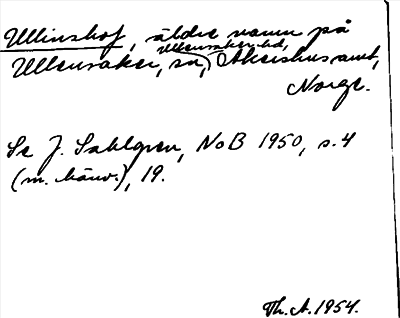 Ullinshof, äldre namn på
Ullensaker hd,
Ullensaker, sn, Akershus amt,
Norge.
Se J. Sahlgren, NoB 1950, s. 4
(m. hänv.), 19.
Th. A. 1954.